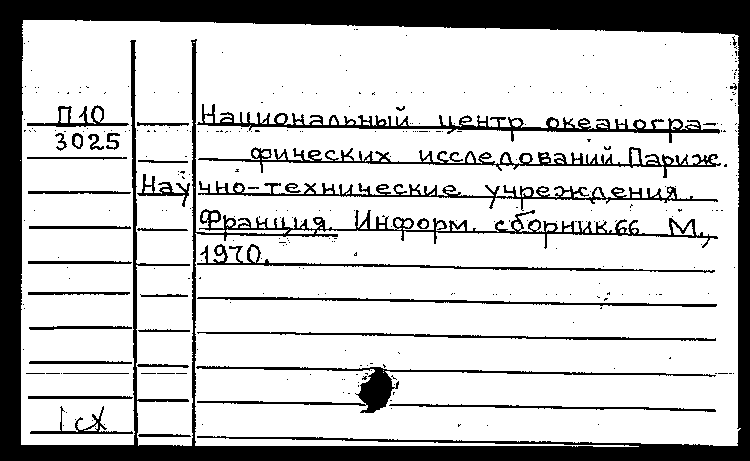 П10
3025
Национальный центр океаногра-
фических исследований. Париж.
Научно-технические учреждения.
Франция. Информ. сборник.66 М.,
1970.